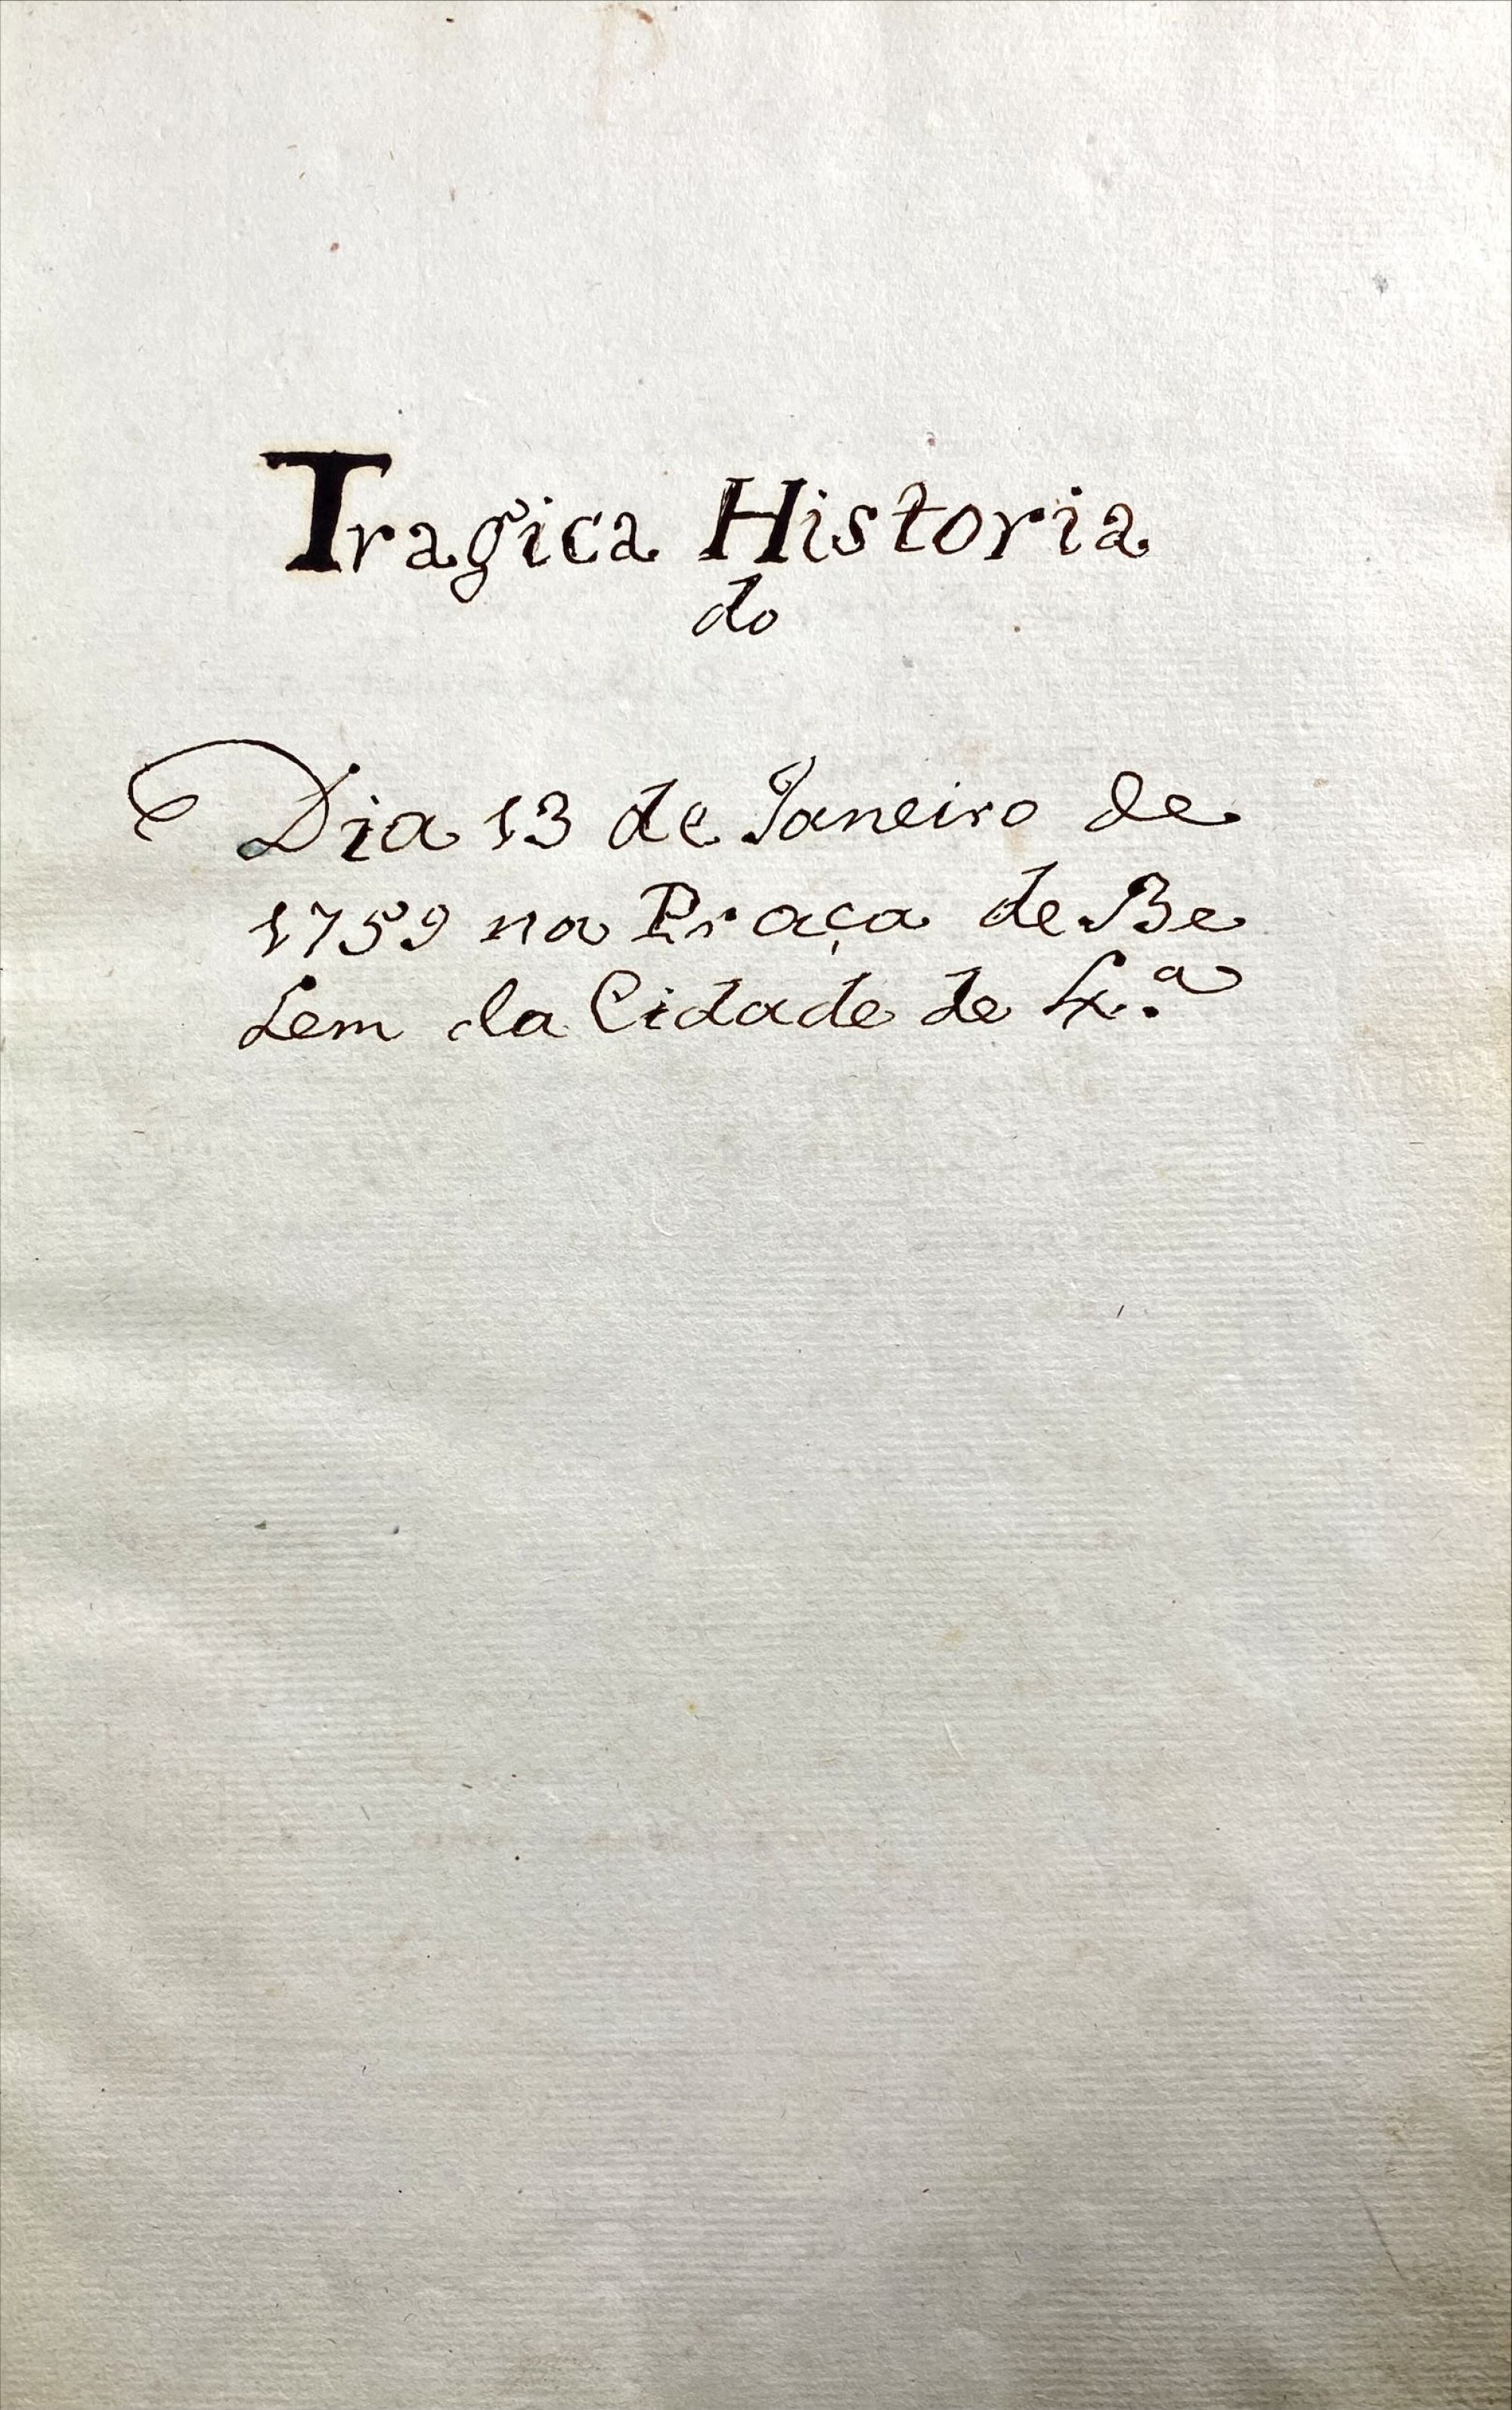 Tragica Historia
do
Dia 13 de Janeiro de
1759 na Praça de Be
lem da Cidade de Lx.ª